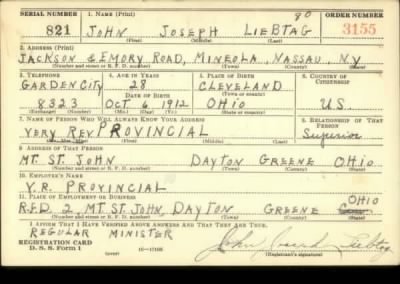 SERIAL NUMBER 1. NAME (Print) ORDER NUMBER
90
821 JOHN JOSEPH LIEBTAG 3155
(First) (Middle) (Last)
2. ADDRESS (Print)
JACKSON & EMORY ROAD, MINEOLA, NASSAU, N.Y
(Number and street or R. F. D. number) (Town) (County) (State)
3. TELEPHONE 4. AGE IN YEARS 5. PLACE OF BIRTH 6. COUNTRY OF CITIZENSHIP
GARDEN CITY 28 CLEVELAND
DATE OF BIRTH (Town or county)
8323 OCT 6, 1912 OHIO U.S.
(Exchange) (Number) (Mo.) (Day) (Yr.) (State or country)
7. NAME OF PERSON WHO WILL ALWAYS KNOW YOUR ADDRESS 8. RELATIONSHIP OF THAT PERSON
VERY REV. PROVINCIAL Superior
(Mr., Mrs., Miss) (First) (Middle) (Last)
9. ADDRESS OF THAT PERSON
MT. ST. JOHN DAYTON GREENE OHIO
(Number and street or R. F. D. number) (Town) (County) (State)
10. EMPLOYER'S NAME
V.R. PROVINCIAL
11. PLACE OF EMPLOYMENT OR BUSINESS OHIO
R.F.D 2, MT. ST. JOHN, DAYTON GREENE
(Number and street or R. F. D. number) (Town) (County) (State)
I AFFIRM THAT I HAVE VERIFIED ABOVE ANSWERS AND THAT THEY ARE TRUE.
REGULAR MINISTER
REGISTRATION CARD John Joseph Liebtag
D. S. S. Form 1 (over) (Registrant's signature)